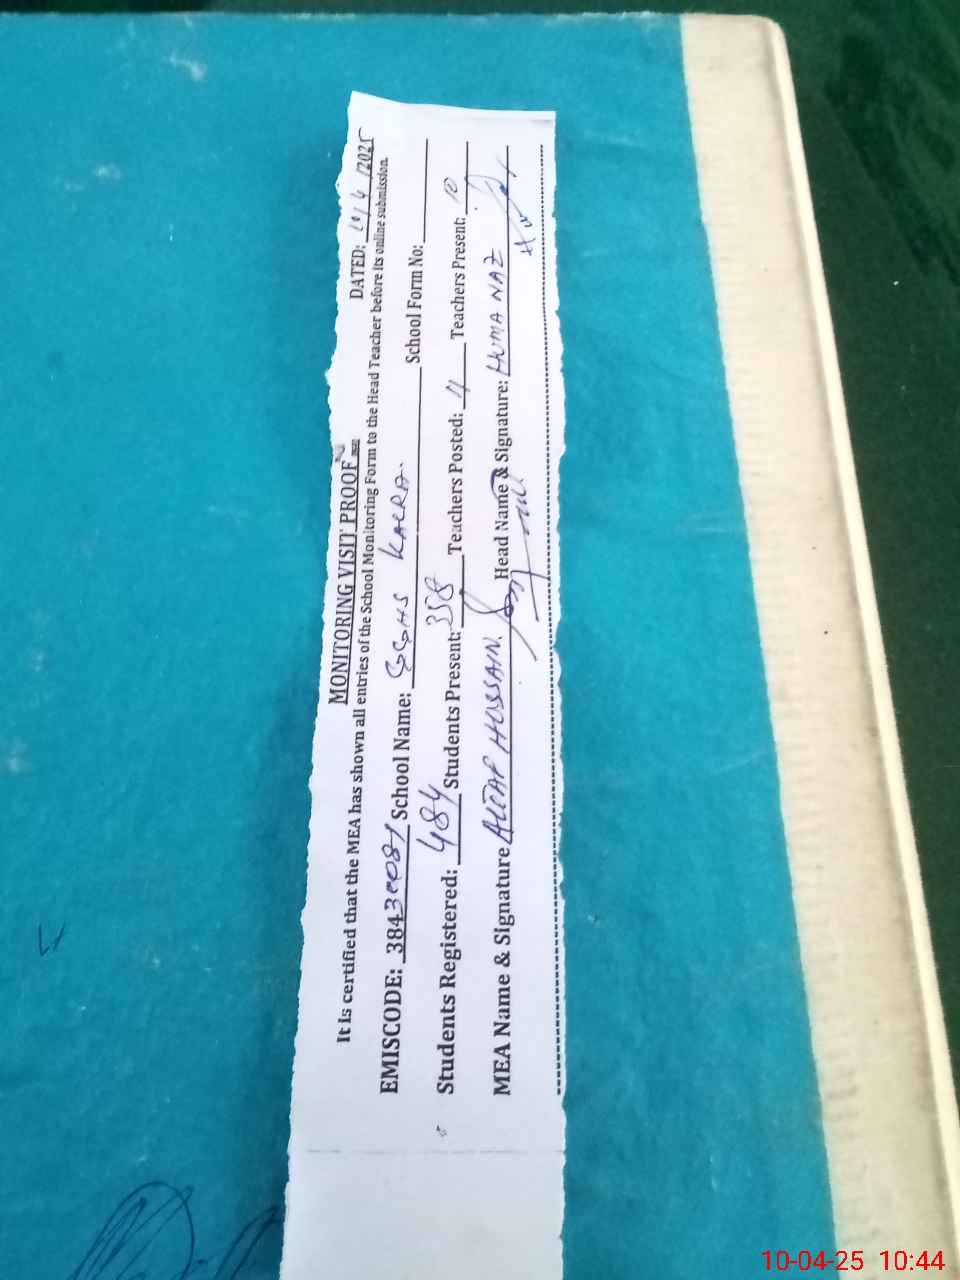 MONITORING VISIT PROOF
DATED: 10/4/2025
It Is certified that the MEA has shown all entries of the School Monitoring Form to the Head Teacher before its online submission.
EMISCODE: 38430081 School Name: GGHS KALRA. School Form No:
Students Registered: 484 Students Present: 358 Teachers Posted: 11 Teachers Present: 10
MEA Name & Signature ALTAF HUSSAIN. Head Name & Signature: HUMA NAZ
10-04-25 10:44